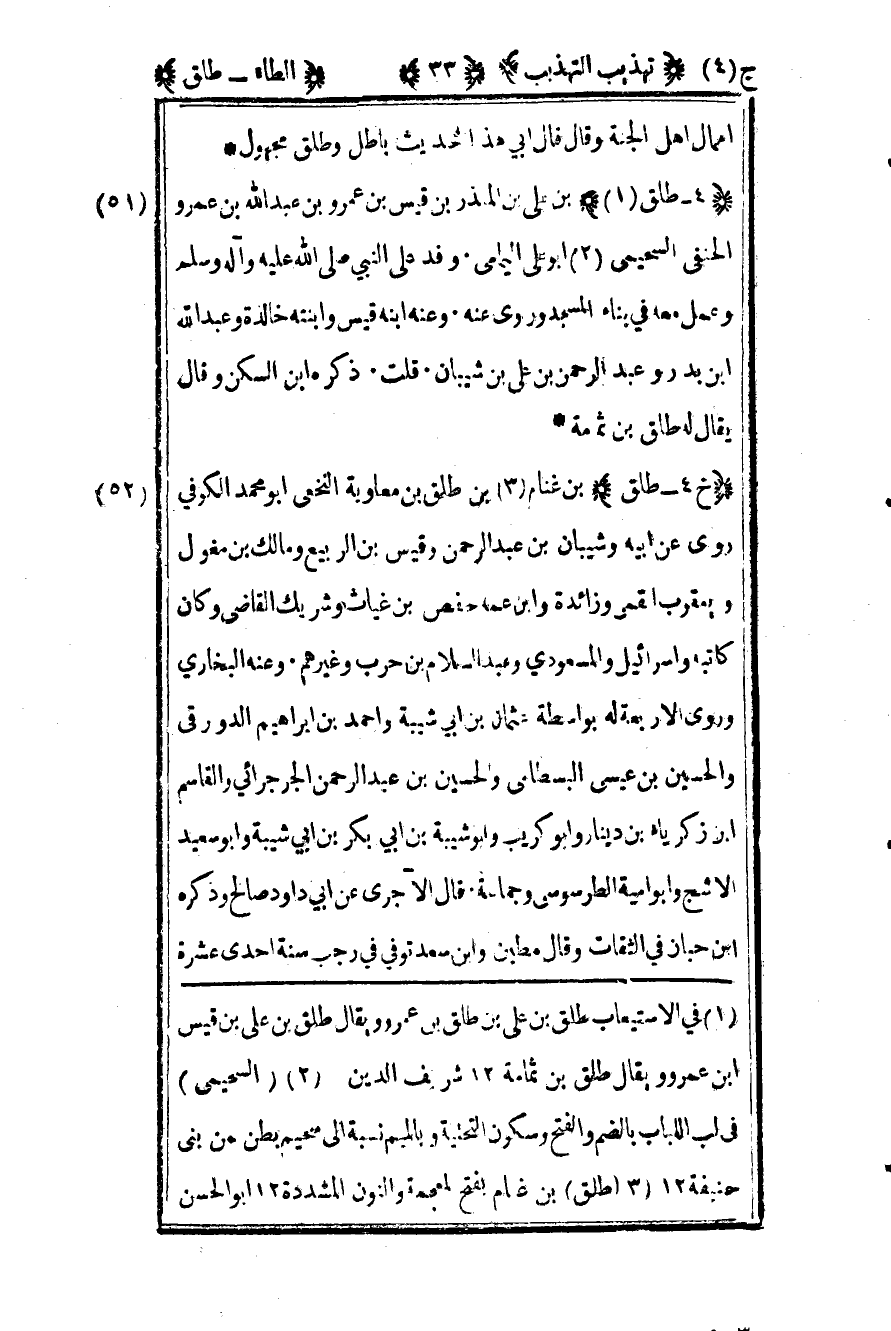 ج (٤) ﴿ تهذيب التهذيب ﴾ ﴿ ٣٣ ﴾ ﴿ الطاء ــ طلق ﴾
اعمال اهل الجنة وقال قال ابي هذا الحديث باطل وطلق مجهول *
﴿ ٤ ــ طلق (١) ﴾ بن علي بن المنذر بن قيس بن عمرو بن عبدالله بن عمرو (٥١)
الحنفى السحيمى (٢) ابو على اليمامى ٠ وفد على النبي صلى الله عليه وآله وسلم
وعمل معه في بناء المسجد وروى عنه ٠ وعنه ابنه قيس وابنته خالدة وعبدالله
ابن بدر وعبد الرحمن بن على بن شيبان ٠ قلت ٠ ذكره ابن السكن وقال
يقال له طلق بن ثمامة *
﴿ خ ٤ ــ طلق ﴾ بن غنام (٣) بن طلق بن معاوية النخعى ابو محمد الكوفي (٥٢)
روى عن ابيه وشيبان بن عبدالرحمن وقيس بن الربيع ومالك بن مغول
ويعقوب القمى وزائدة وابن عمه حفص بن غياث وشريك القاضى وكان
كاتبه واسرائيل والمسعودي وعبدالسلام بن حرب وغيرهم ٠ وعنه البخاري
وروى الاربعة له بواسطة عثمان بن ابي شيبة واحمد بن ابراهيم الدورقى
والحسين بن عيسى البسطامى والحسين بن عبدالرحمن الجرجرائي والقاسم
ابن زكرياء بن دينار وابو كريب وابو شيبة بن ابي بكر بن ابي شيبة وابو سعيد
الاشج وابو امية الطرسوسى وجماعة ٠ قال الآجرى عن ابي داود صالح وذكره
ابن حبان في الثقات وقال مطين وابن سعد توفي في رجب سنة احدى عشرة
(١) في الاستيعاب طلق بن على بن طلق بن عمرو ويقال طلق بن على بن قيس
ابن عمرو ويقال طلق بن ثمامة ١٢ شريف الدين (٢) (السحيمى)
فى لب اللباب بالضم والفتح وسكون التحتية وبالميم نسبة الى سحيم بطن من بنى
حنيفة ١٢ (٣ طلق) بن غنام بفتح المعجمة والنون المشددة ١٢ ابو الحسن